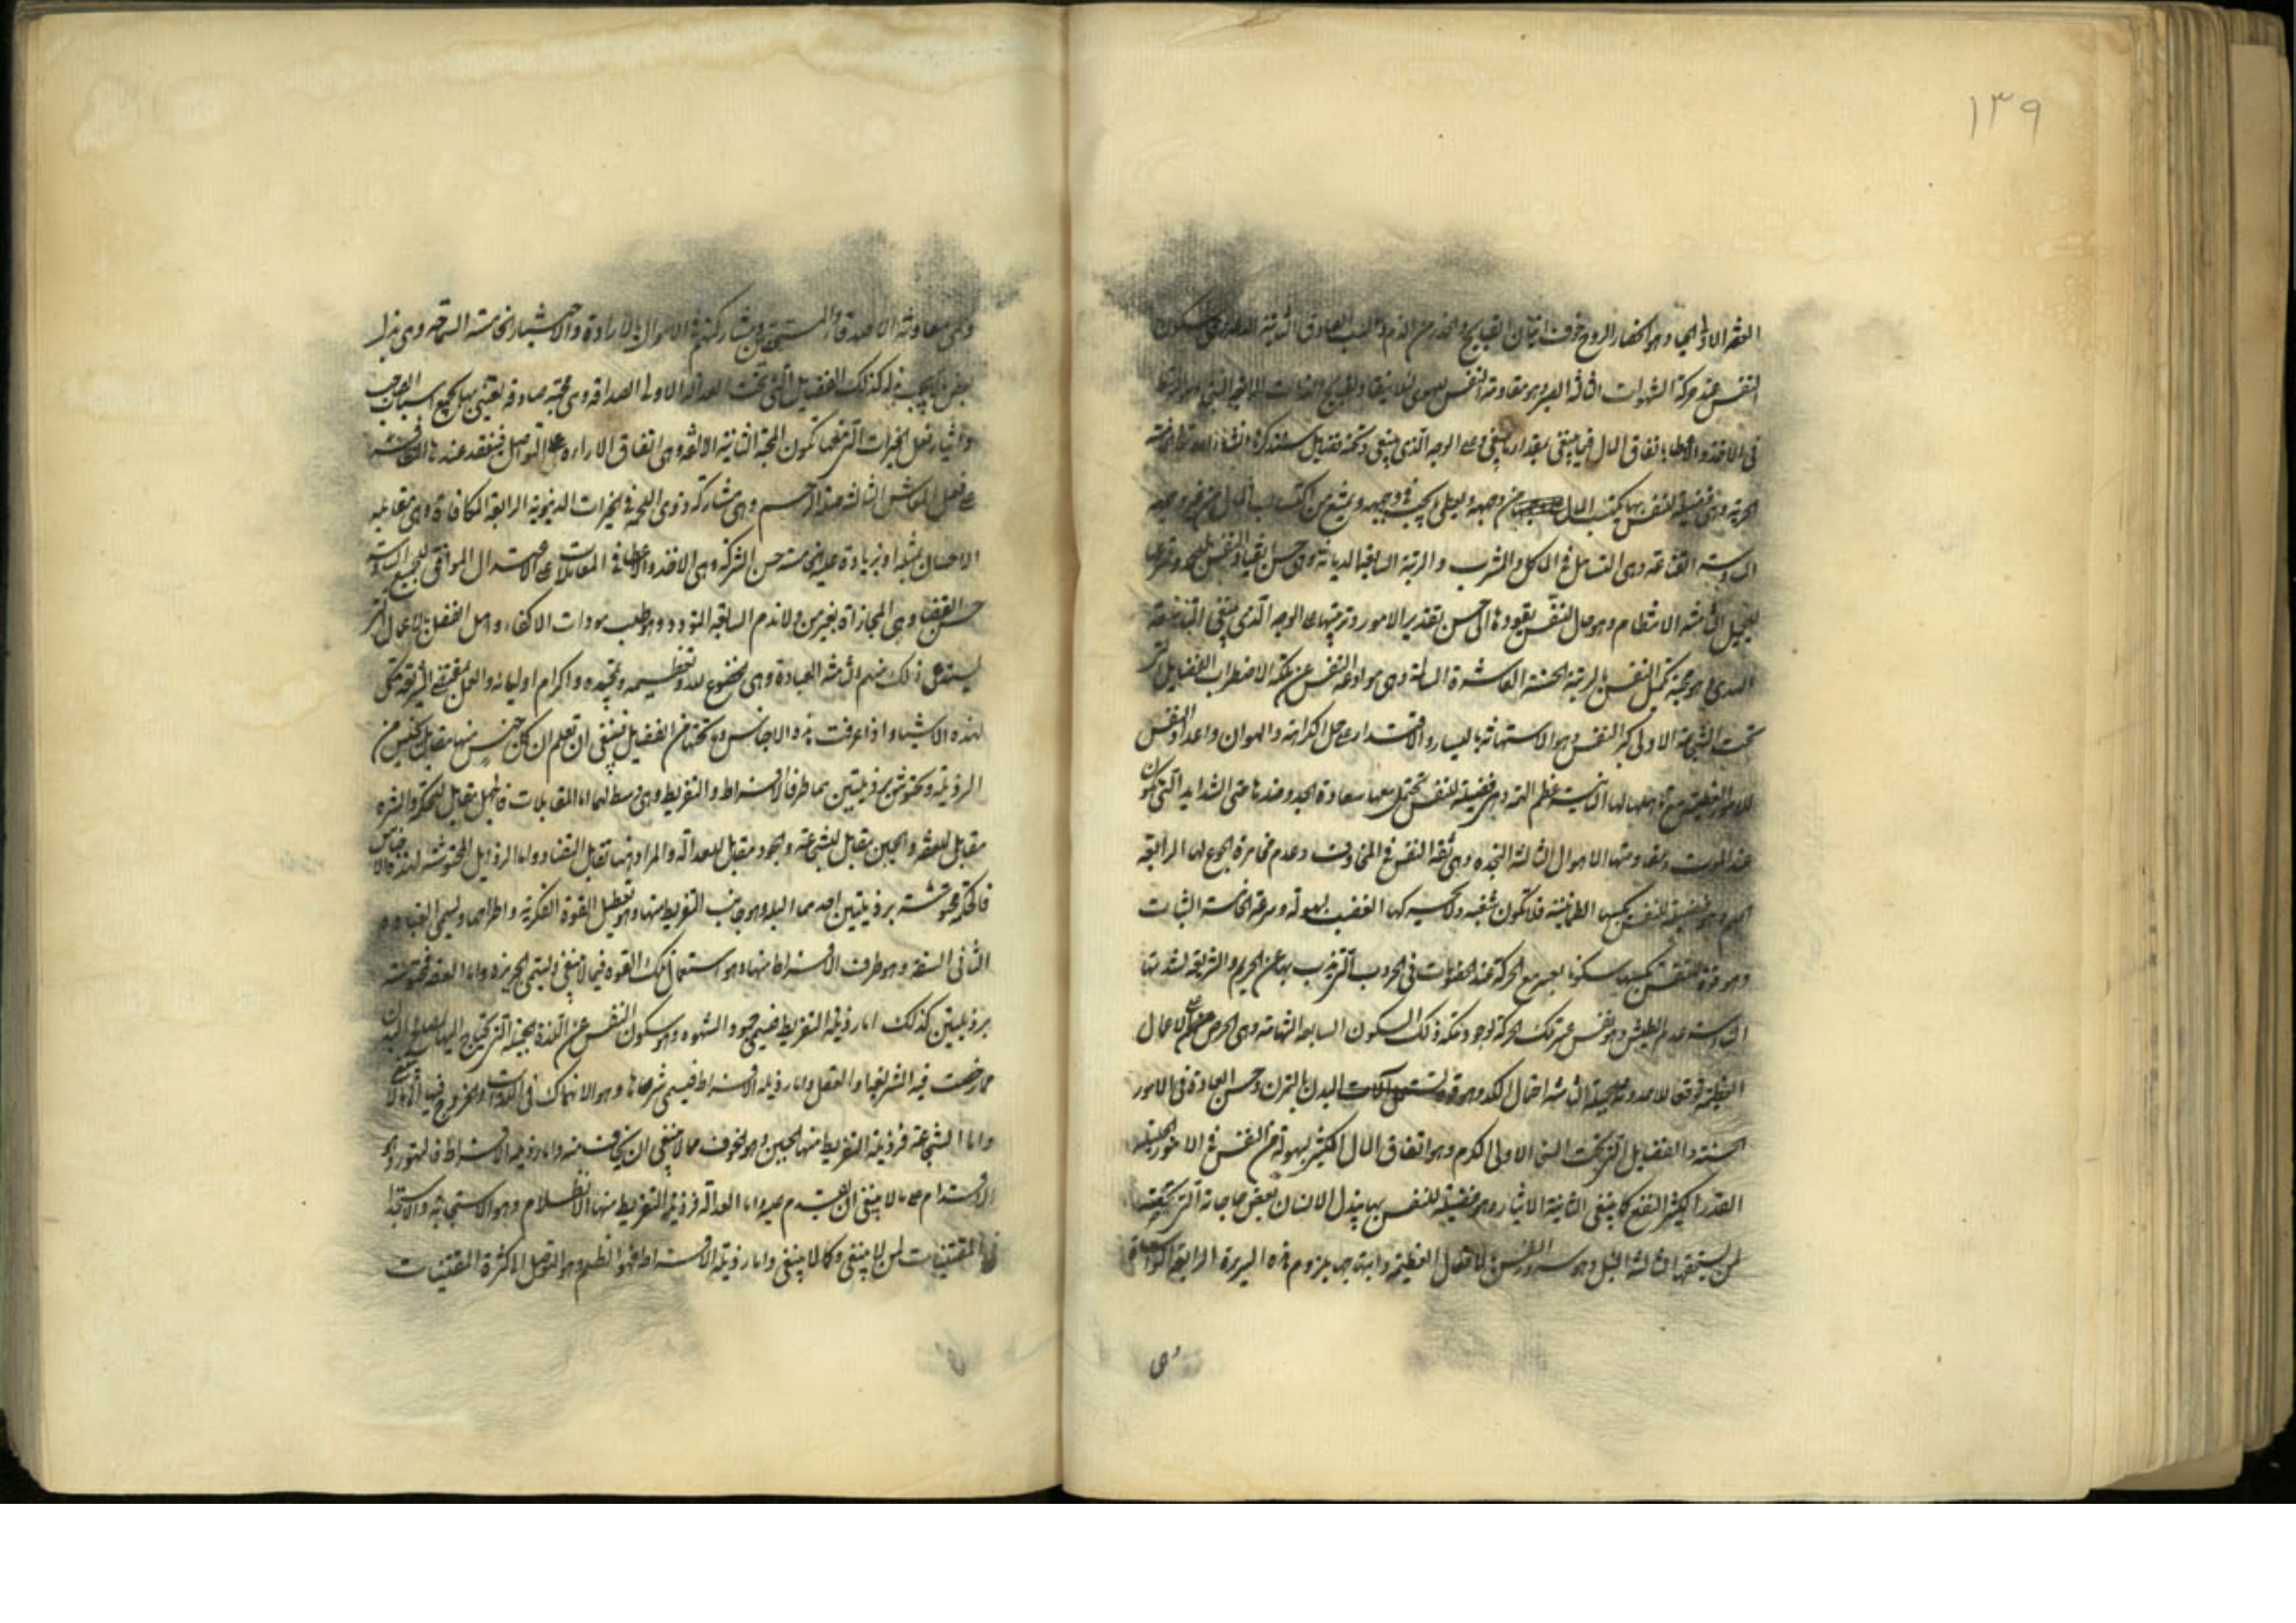 ١٣٩
العفة الاولى الحياء وهو انحصار الروح خوف اتيان القبايح والحذر من الذم والسب الصادق الثانية الدعة وهي سكون
النفس عند حركة الشهوات الثالثة الصبر وهو مقاومة النفس الهوى لئلا ينقاد لقبايح اللذات الرابعة السخاء وهو التوسط
في الاخذ والاعطاء بانفاق المال فيما ينبغي بمقدار ما ينبغي وعلى الوجه الذي ينبغي وتحته فضايل سنذكرها انشاء الله تعالى الخامسة
الحرية وهي فضيلة للنفس بها يكتسب المال من وجهه ويعطي ما يجب في وجهه ويمتنع من اكتساب المال من غير وجهه
السادسة القناعة وهي التساهل في الماكل والمشرب والمرتبة السابعة الدماثة وهي حسن انقياد النفس لما يجمل وتسرعها
للجميل الثامنة الانتظام وهو حال للنفس يقودها الى حسن تقدير الامور وترتيبها على الوجه الذي ينبغي التاسعة
الهدى وهو محبة تكميل النفس بالزينة الحسنة العاشرة المسالمة وهي موادعة النفس عن ملكة لا اضطراب الفضايل التي
تحت الشجاعة الاولى كبر النفس وهو الاستهانة باليسار والاقتدار على حمل الكرامة والهوان واعداد النفس
للامور العظيمة مع تاهلها لها الثانية عظم الهمة وهي فضيلة للنفس تحتمل معها سعادة الجد وضدها حتى الشدايد التي تكون
عند الموت ومقاومتها الاهوال الثالثة النجدة وهي ثقة النفس في المخاوف وعدم مخامرة الجزع لها الرابعة
الحلم وهي فضيلة للنفس يكسبها الطمانينة فلا تكون شغبة ولا يحركها الغضب بسهولة وسرعة الخامسة الثبات
وهو قوة للنفس يكسبها سكونا يعسر مع الحركة عند الخصومات في الحروب التي يذب بها عن الحريم والشريعة لشدتها
السادسة عدم الطيش وهو نفس تلك الحركة لوجود ملكة ذلك السكون السابعة الشهامة وهي الحرص على الاعمال
العظيمة توقعا للاحدوثة الجميلة الثامنة احتمال الكد وهو قوة تستعمل آلات البدن بالتمرن وحسن العادة في الامور
الحسنة والفضايل التي تحت السخا الاولى الكرم وهو انفاق المال الكثير بسهولة من النفس في الامور الجليلة
القدر الكثير النفع كما ينبغي الثانية الايثار وهو فضيلة للنفس بها يبذل الانسان بعض حاجاته التي تخصه
لمن يستحقها الثالثة النبل وهو سرور النفس بالافعال العظيمة وابتهاجها بلزوم هذه السيرة الرابعة المواساة
وهي
وهي معاونة الاصدقاء والمستحقين ومشاركتهم في الاموال بالارادة والاختيار الخامسة السماحة وهي بذل
بعض ما لا يجب بذله كذلك الفضايل التي تحت العدالة الاولى الصداقة وهي محبة صادقة يعتني بها بجميع اسباب الصاحب
وايثار فعل الخيرات التي فيها تكون المحبة الثانية الالفة وهي اتفاق الاراء على التواصل فينعقد عندها التعاون
على فعل المعاش الثالثة صلة الرحم وهي مشاركة ذوي اللحمة في الخيرات الدنيوية الرابعة المكافاة وهي مقابلة
الاحسان بمثله او بزيادة عليه الخامسة حسن الشركة وهي الاخذ والاعطا في المعاملات على الاعتدال الموافق للجميع السادسة
حسن القضاء وهي المجازاة بغير من ولا ندم السابعة التودد وهو طلب مودات الاكفاء واهل الفضل بالاعمال التي
يستدعى ذلك منهم الثامنة العبادة وهي الخضوع لله وتعظيمه وتمجيده واكرام اوليائه والعمل بمقتضى الشريعة مكمل
لهذه الاشياء واذا عرفت هذه الاجناس وما تحتها من الفضايل فينبغي ان تعلم ان كل جنس منها مقابل بجنس من
الرذيلة ومحتوش برذيلتين هما طرفا الافراط والتفريط وهي وسط لهما اما المقابلات فالجهل مقابل للحكمة والشره
مقابل للعفة والجبن مقابل للشجاعة والجور مقابل للعدالة والمراد هنا تقابل التضاد واما الرذايل المحتوشة لهذه الاجناس
فالحكمة محتوشة برذيلتين احديهما البله وهو جانب التفريط منها وهو تعطيل القوة الفكرية واطراحها ويسمى الغباوة
الثاني السفه وهو طرف الافراط منها وهو استعمال تلك القوه فيما لا ينبغي ويسمى الجربزه واما العفة فمحتوشة
برذيلتين كذلك اما رذيلة التفريط فيسمى خمود الشهوه وهو سكون النفس عن اللذة الجميلة التي يحتاج اليها لمصالح البدن
مما رخصت فيه الشريعة او العقل واما رذيلة الافراط فيسمى شرها وهو الانهماك في اللذات والخروج فيها الى ما لا ينبغي
واما الشجاعة فرذيلة التفريط منها الجبن وهو الخوف مما لا ينبغي ان يخاف منه واما رذيلة الافراط فالتهور وهو
الاقدام على ما لا ينبغي ان يقدم عليه واما العدالة فرذيلة التفريط منها الانظلام وهو الاستجابة والاستخذا
في المقتنيات لمن لا ينبغي وكما لا ينبغي واما رذيلة الافراط فهو الظلم وهو التوصل الى كثرة المقتنيات